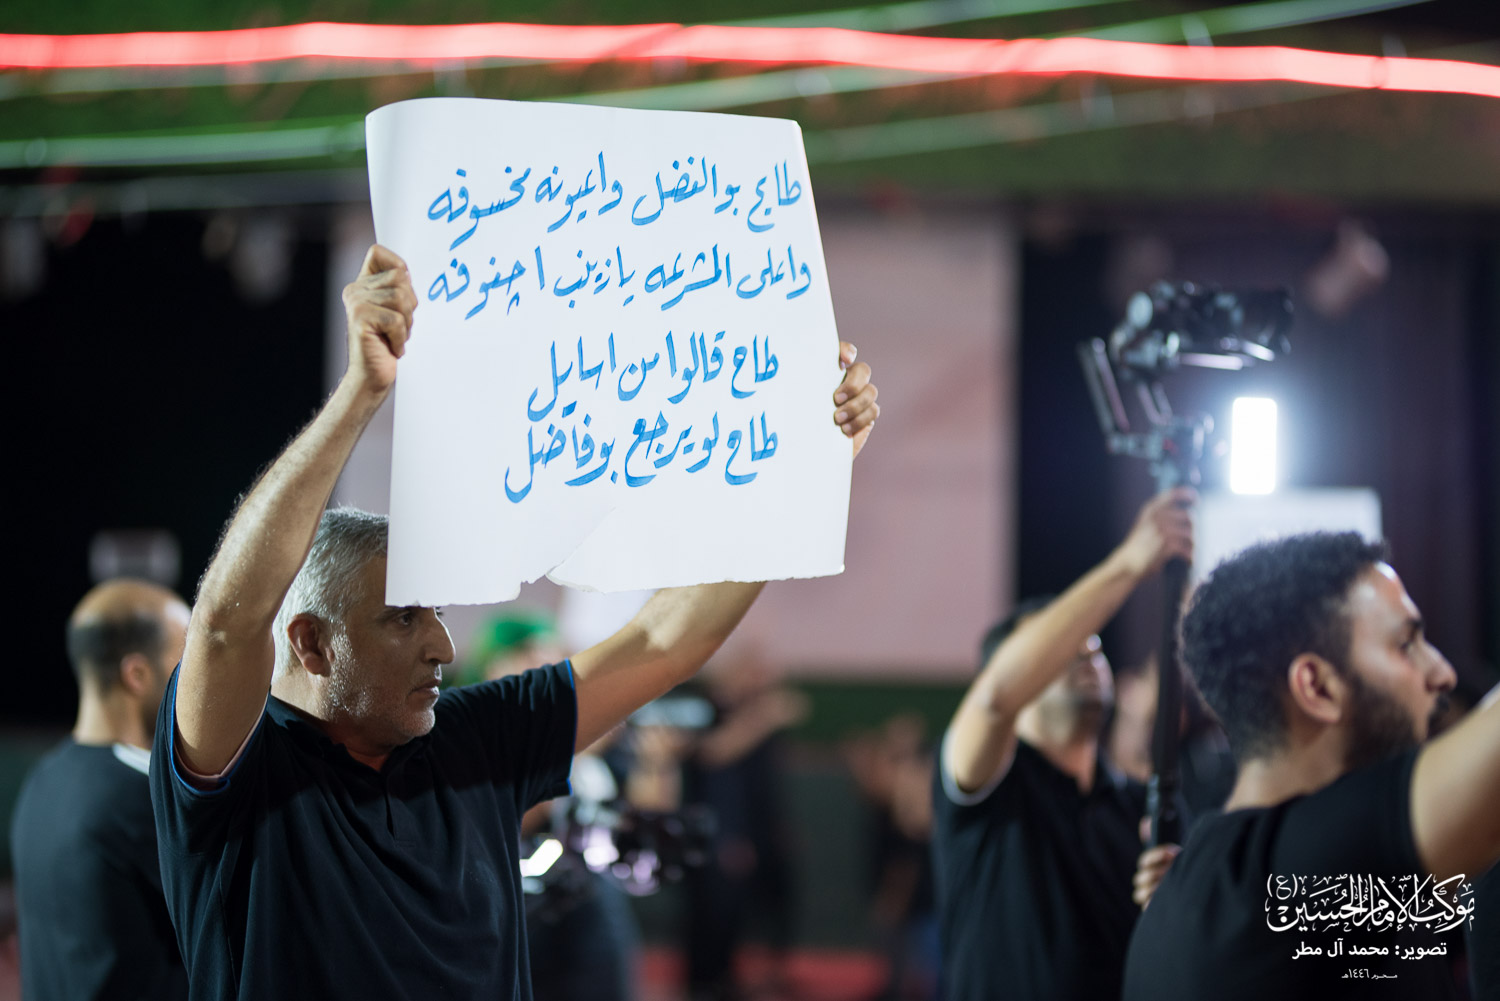 طايح بوالفضل واعيونه مخسوفه
واعلى المشرعه يا زينب اچفوفه
طاح قالوا من اسايل
طاح لو يرجع بوفاضل
موكب الإمام الحسين (ع)
تصوير: محمد آل مطر
محرم ١٤٤٦هـ